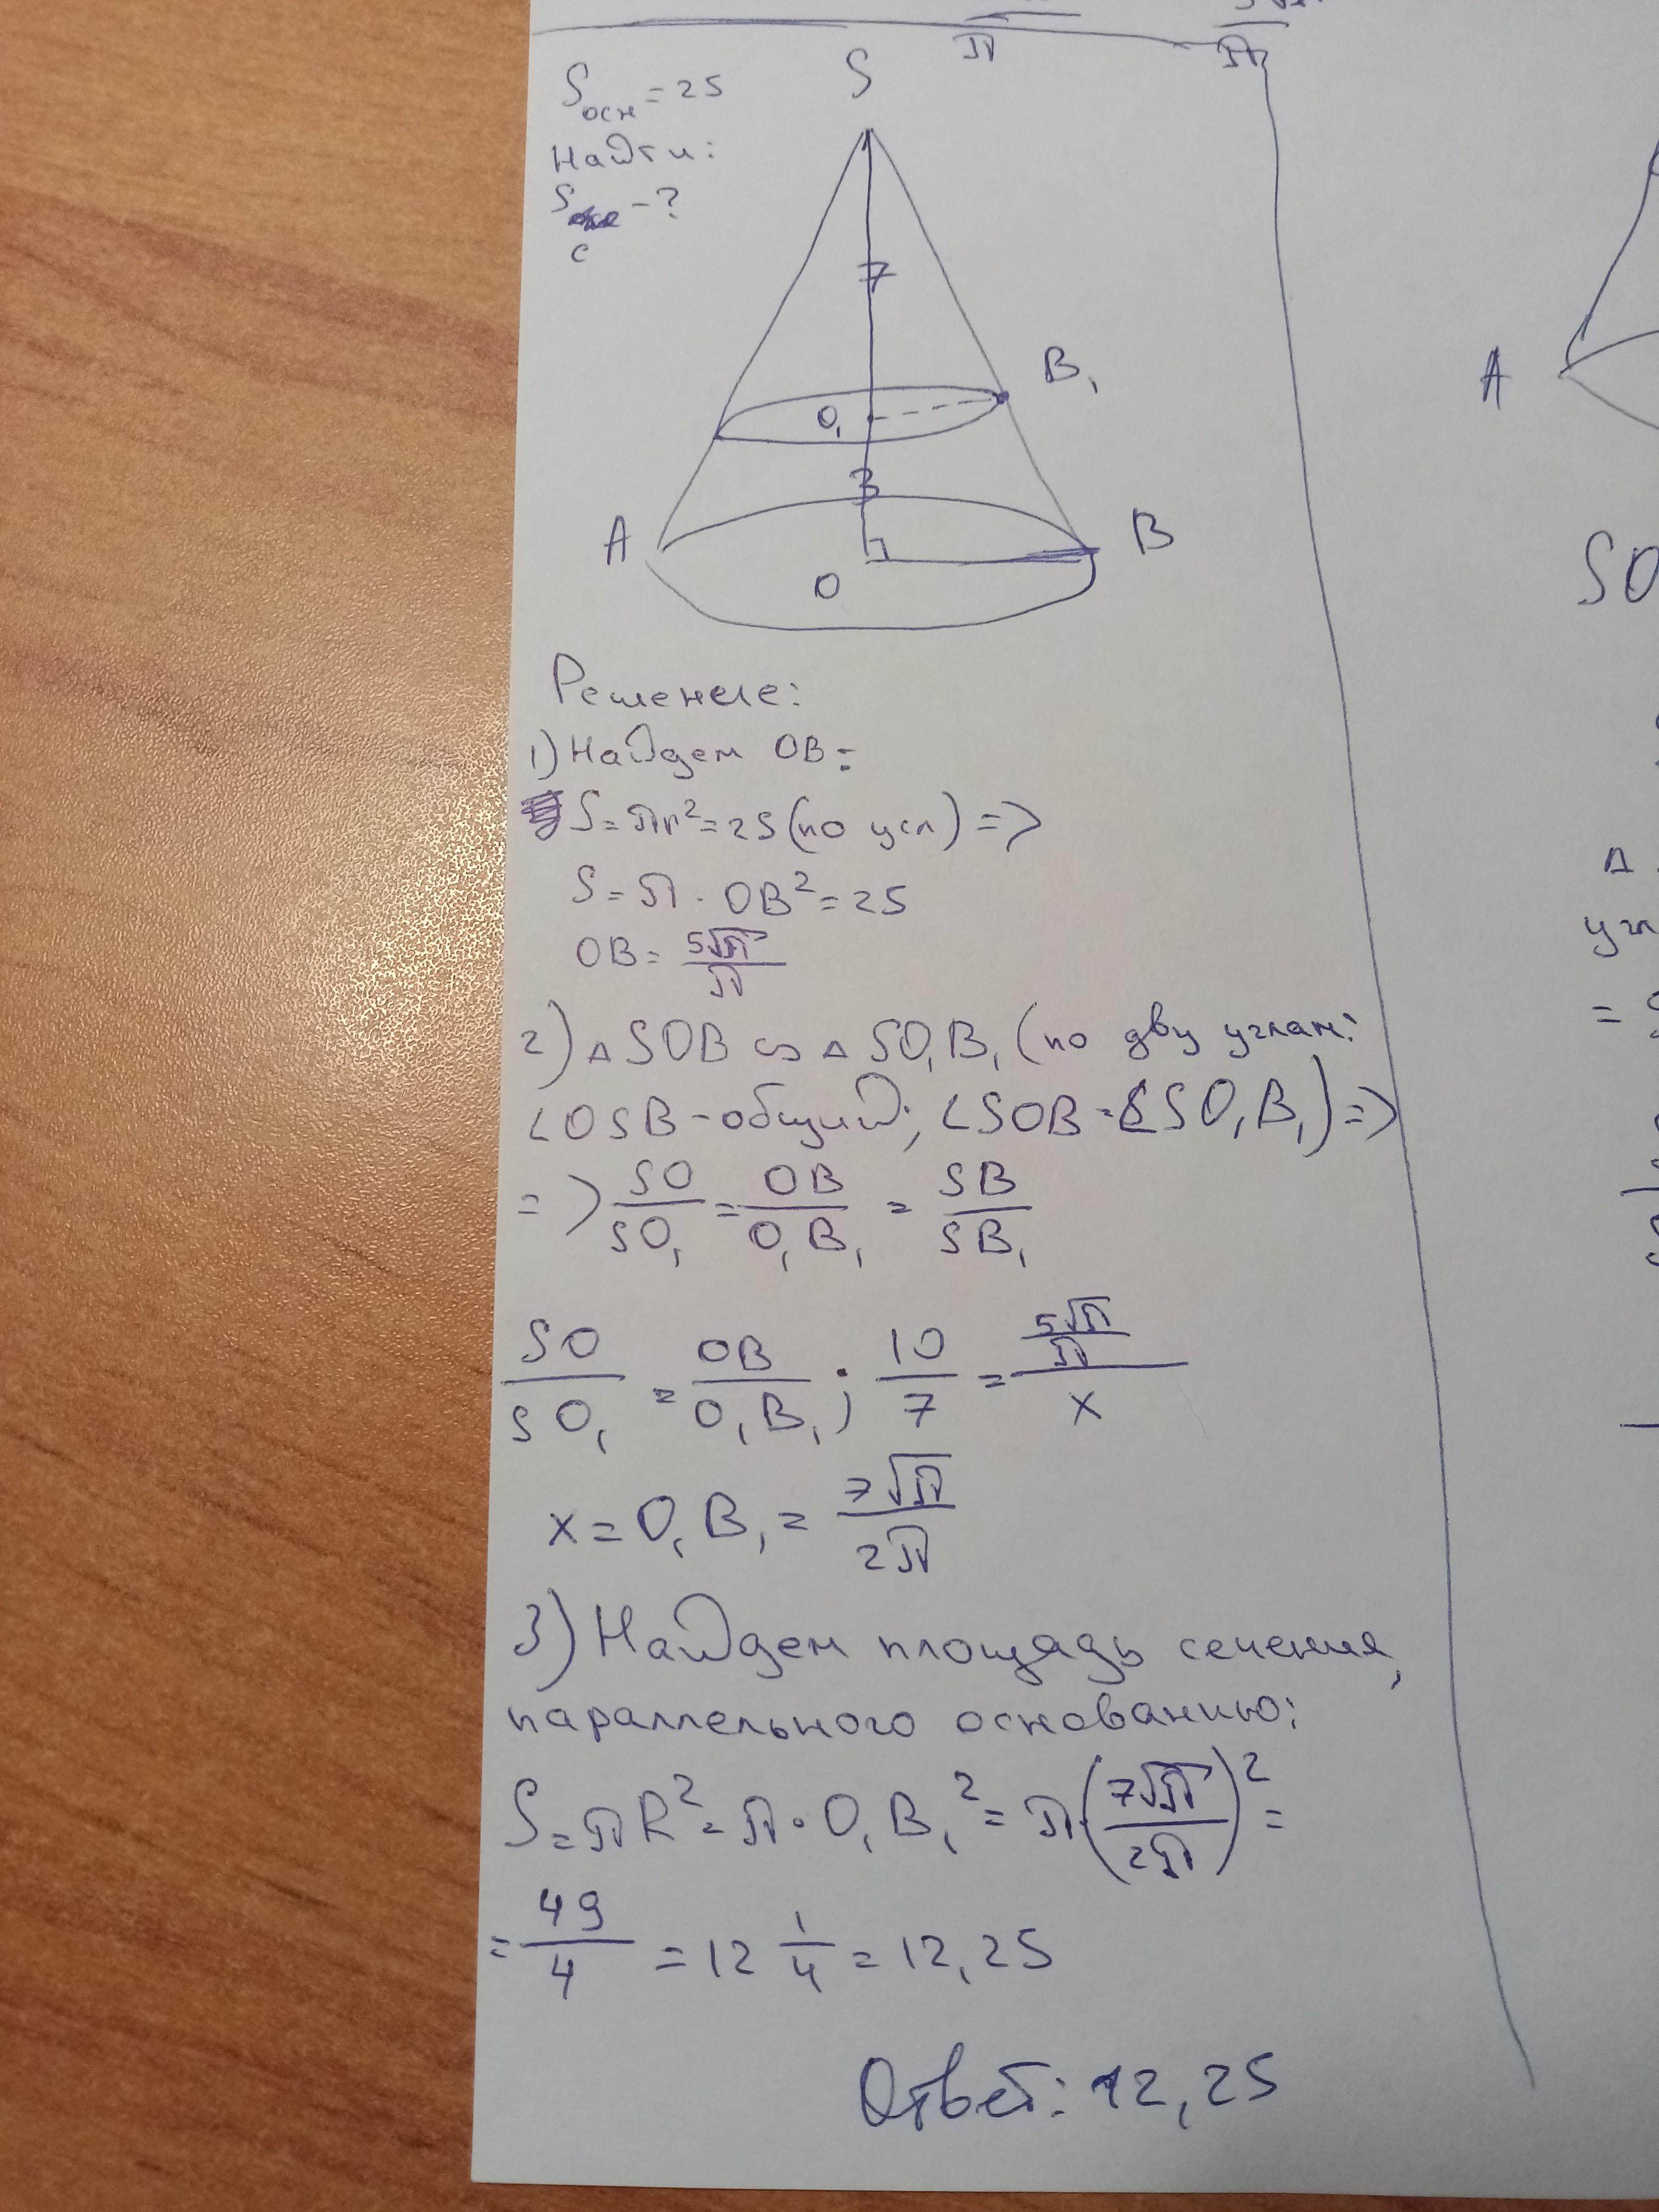 π
π
S осн = 25
Найти:
S с - ?
S
7
B₁
O₁
3
A
B
O
A
SO
Решение:
1) Найдем OB:
S = πr² = 25 (по усл) =>
S = π · OB² = 25
OB = 5√π/π
2) △SOB ∽ △SO₁B₁ (по дву углам:
∠OSB - общий; ∠SOB = ∠SO₁B₁) =>
=> SO/SO₁ = OB/O₁B₁ = SB/SB₁
SO/SO₁ = OB/O₁B₁; 10/7 = (5√π/π)/x
x = O₁B₁ = 7√π/2π
3) Найдем площадь сечения,
параллельного основанию:
S = πR² = π · O₁B₁² = π · (7√π/2π)² =
= 49/4 = 12 1/4 = 12,25
Ответ: 12,25
△
угл
=